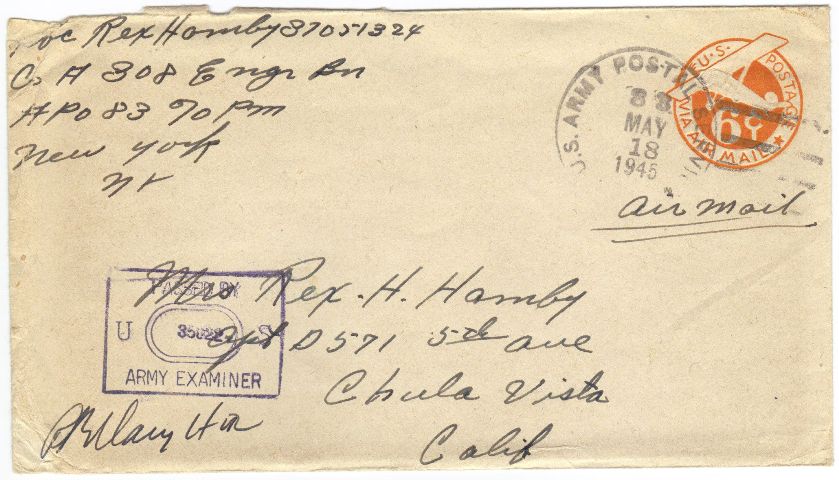 Rex Hamby 37051324
Co A 308 Engr Bn
APO 83 % P m
New York
NY
U.S. POSTAGE
VIA AIR MAIL
6¢
U.S. ARMY POSTAL
MAY
18
1945
Air Mail
PASSED BY
U S
ARMY EXAMINER
Mrs Rex. H. Hamby
Apt D 571 5th ave
Chula Vista
Calif